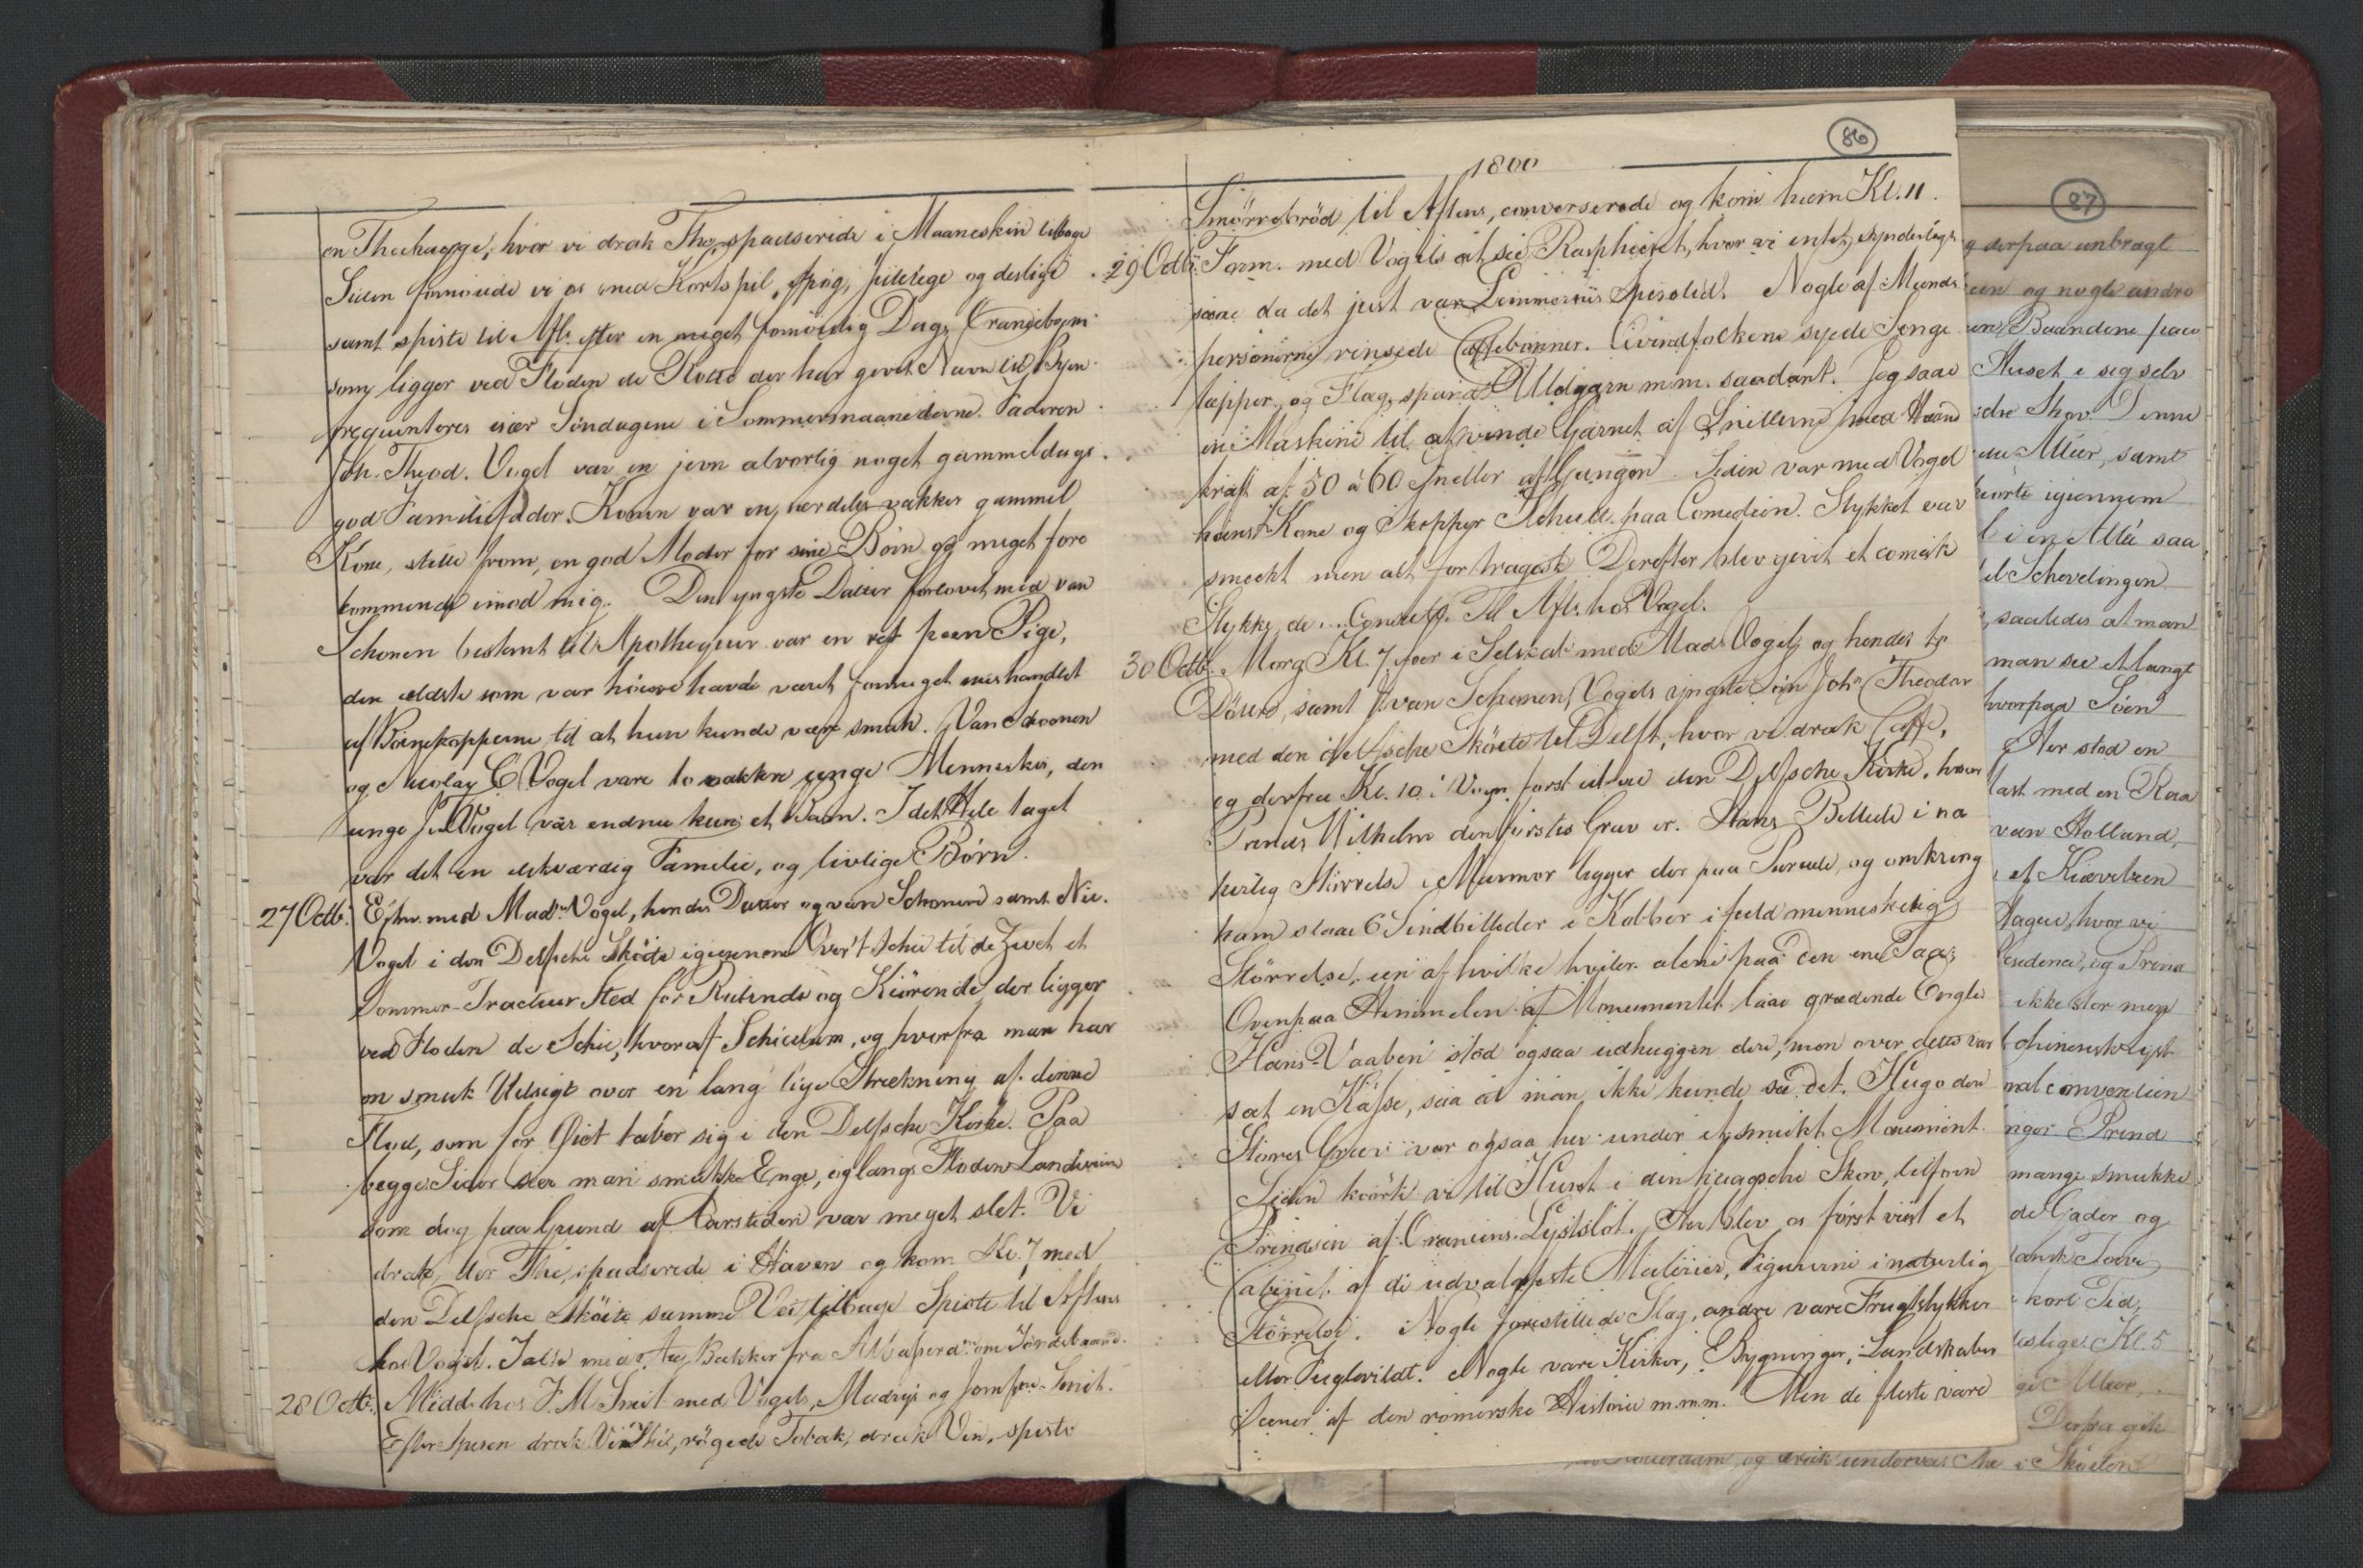 en Theehauge, hvor vi drak The, spadserede i Maaneskin tilbage
Siden fornöiede vi os med Kortspil, Spög, julelege og deslige
samt spiste til Aft. efter en meget fornöielig Dag. Oranjebom
som ligger ved Floden de Rotte der har givet Navn til Byen
frequenteres især Söndagene i Sommermaanederne. Faderen
Joh. Theod. Vogel var en jevn alvorlig noget gammeldags
god Familiefader. Konen var en særdeles vakker gammel
Kone, stille from, en god Moder for sine Börn og meget fore
kommende imod mig. Den yngste Datter forlovet med van
Schonen bestemt til Apotheqver var en ret pæn Pige,
den ældste som var höiere havde været for meget mishandlet
af Börnekopperne til at hun kunde være smuk. Van Schoonen
og Nicolay C Vogel vare to vakkre unge Mennesker, den
unge J. Vogel var endnu kun et Barn. I det Hele taget
var det en elskværdig Familie, og livlige Börn.
27 Octb. Efterm. med Mad. Vogel, hendes Datter og van Schonen samt Nic.
Vogel i den Delfsche Sköite igiennem Over't Schie til de Zwet et
Sommer-Tracteur Sted for Ridende og Kiörende, der ligger
ved Floden de Schie, hvoraf Schiedam, og hvorfra man har
en smuk Udsigt over en lang lige Strækning af denne
Flod, som for Öiet taber sig i den Delfsche Kirke. Paa
begge Sider sees man smukke Enge, og langs Floden Landveien
som dog paa Grund af Aarstiden var meget slet. Vi
drak der The, spadserede i Haven og kom Kl. 7 med
den Delfsche Sköite samme Vei tilbage. Spiste til Aftens
hos Vogel. Talte med Bakker fra om Töndebaand.
28 Octb. Midd. hos F. M Smit med Vogels, Madrys og Jomfru Smit.
Efter Spisen drak Vi Thee, rögede Tobak, drak Vin, spiste
86
1800
Smörrebröd til Aftens, converserede og kom hjem Kl. 11.
29 Octb. Form. med Vogels at see Rasphuset, hvor vi intet synderligt
saae da det just var Lemmernes Spisetid. Nogle af Mands
personerne rinsede Caffebönner. Qvindfolkene syede Senge
tæpper, og Flag, spandt Uldgarn m.m. saadant. Jeg saae
en Maskine til at vinde Garnet af Snellerne med Haand
kraft af 50 a 60 Sneller af Gangen. Siden var med Vogel
hans Kone og Skipper Schult paa Comedien. Stykket var
smukt men alt for tragisk. Derefter blev givet et comisk
Stykke, de ... Til Aft. hos Vogel.
30 Octb. Morg. Kl. 7 foer i Selskab med Mad. Vogel og hendes to
Döttre, samt van Schonen, Vogels yngste Sön Joh. Theodor
med den delfsche Sköite til Delft, hvor vi drak Caffe,
og derfra Kl. 10 i Vogn först ud at see den Delfsche Kirke, hvor
Prinds Wilhelm den Förstes Grav er. Hans Billede i na
turlig Störrelse i Marmor ligger der paa Parade, og omkring
ham staae 6 Sindbilleder i Kobber i fuld menneskelig
Störrelse, een af hvilke hviler alene paa den ene Taae.
Ovenpaa Himmelen af Monumentet laae grædende Engle
Hans Vaaben stod ogsaa udhuggen der, men over dette var
sat en Kasse, saa at man ikke kunde see det. Hugo den
Stores Grav var ogsaa her under et smukt Monument.
Siden kiörte vi til Huset i den haagsche Skov, tilforn
Prindsen af Oraniens Lystslot. Her blev os först viist et
Cabinet af de udvalgteste Malerier, Figurerne i naturlig
Störrelse. Nogle forestillede Slag, andre vare Frugtstykker
eller Fuglevildt. Nogle vare Kirker, Bygninger, Landskaber
Scener af den romerske Historie m.m.m. Men de fleste vare
87
g derpaa anbragt
een og nogle andre
en Baandene paa
Huset i sig selv
idre Skov. Denne
de Alleer, samt
kiörte igiennem
l i en Allé saa
til Schevelingen
, saaledes at man
man see et langt
hvorpaa Söen
Her stod en
last med en Raa
van Holland,
Haag, hvor vi
esidence, og Prins
ikke stor men
t chinesisk Lyst
nal convention
inger Prind
mange smukke
de Gader og
dansk Torv
kort Tid,
deslige. Kl. 5
ge Alleer,
Derfra gik
og drak underveis The i Sköiten